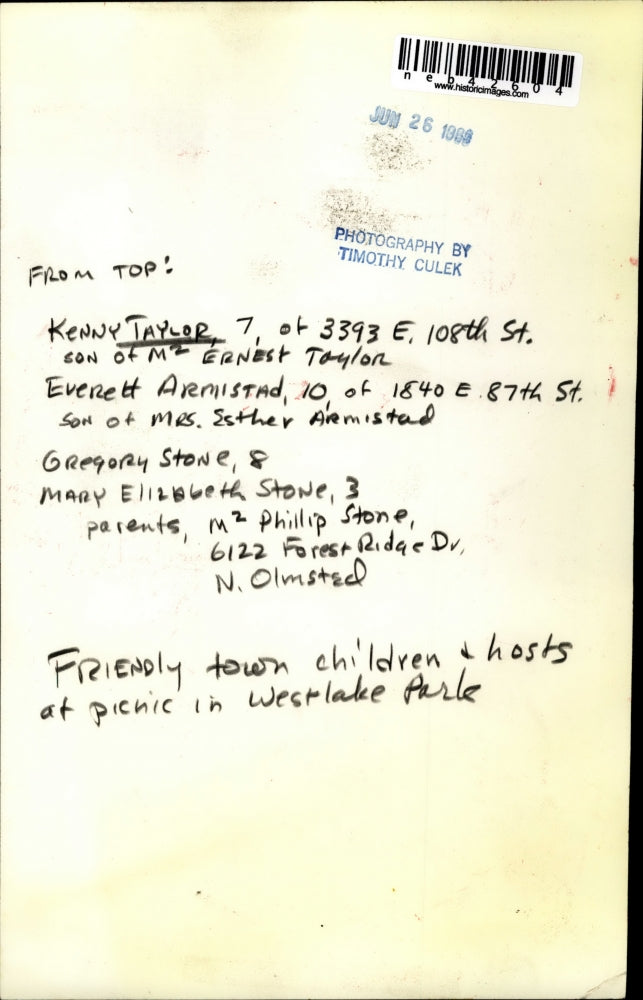 neb42604
www.historicimages.com
JUN 26
PHOTOGRAPHY BY
TIMOTHY CULEK
FROM TOP:
KENNY TAYLOR, 7, of 3393 E. 108th St.
son of M² ERNEST Taylor
Everett ARMISTAd, 10, of 1840 E. 87th St.
son of MRS. Esther ARMistad
GREGORY STONE, 8
MARY ElizAbeth Stone, 3
parents, M² Phillip Stone,
6122 Forest Ridge Dr,
N. Olmsted
FRIENDly town children & hosts
at picnic in Westlake Park